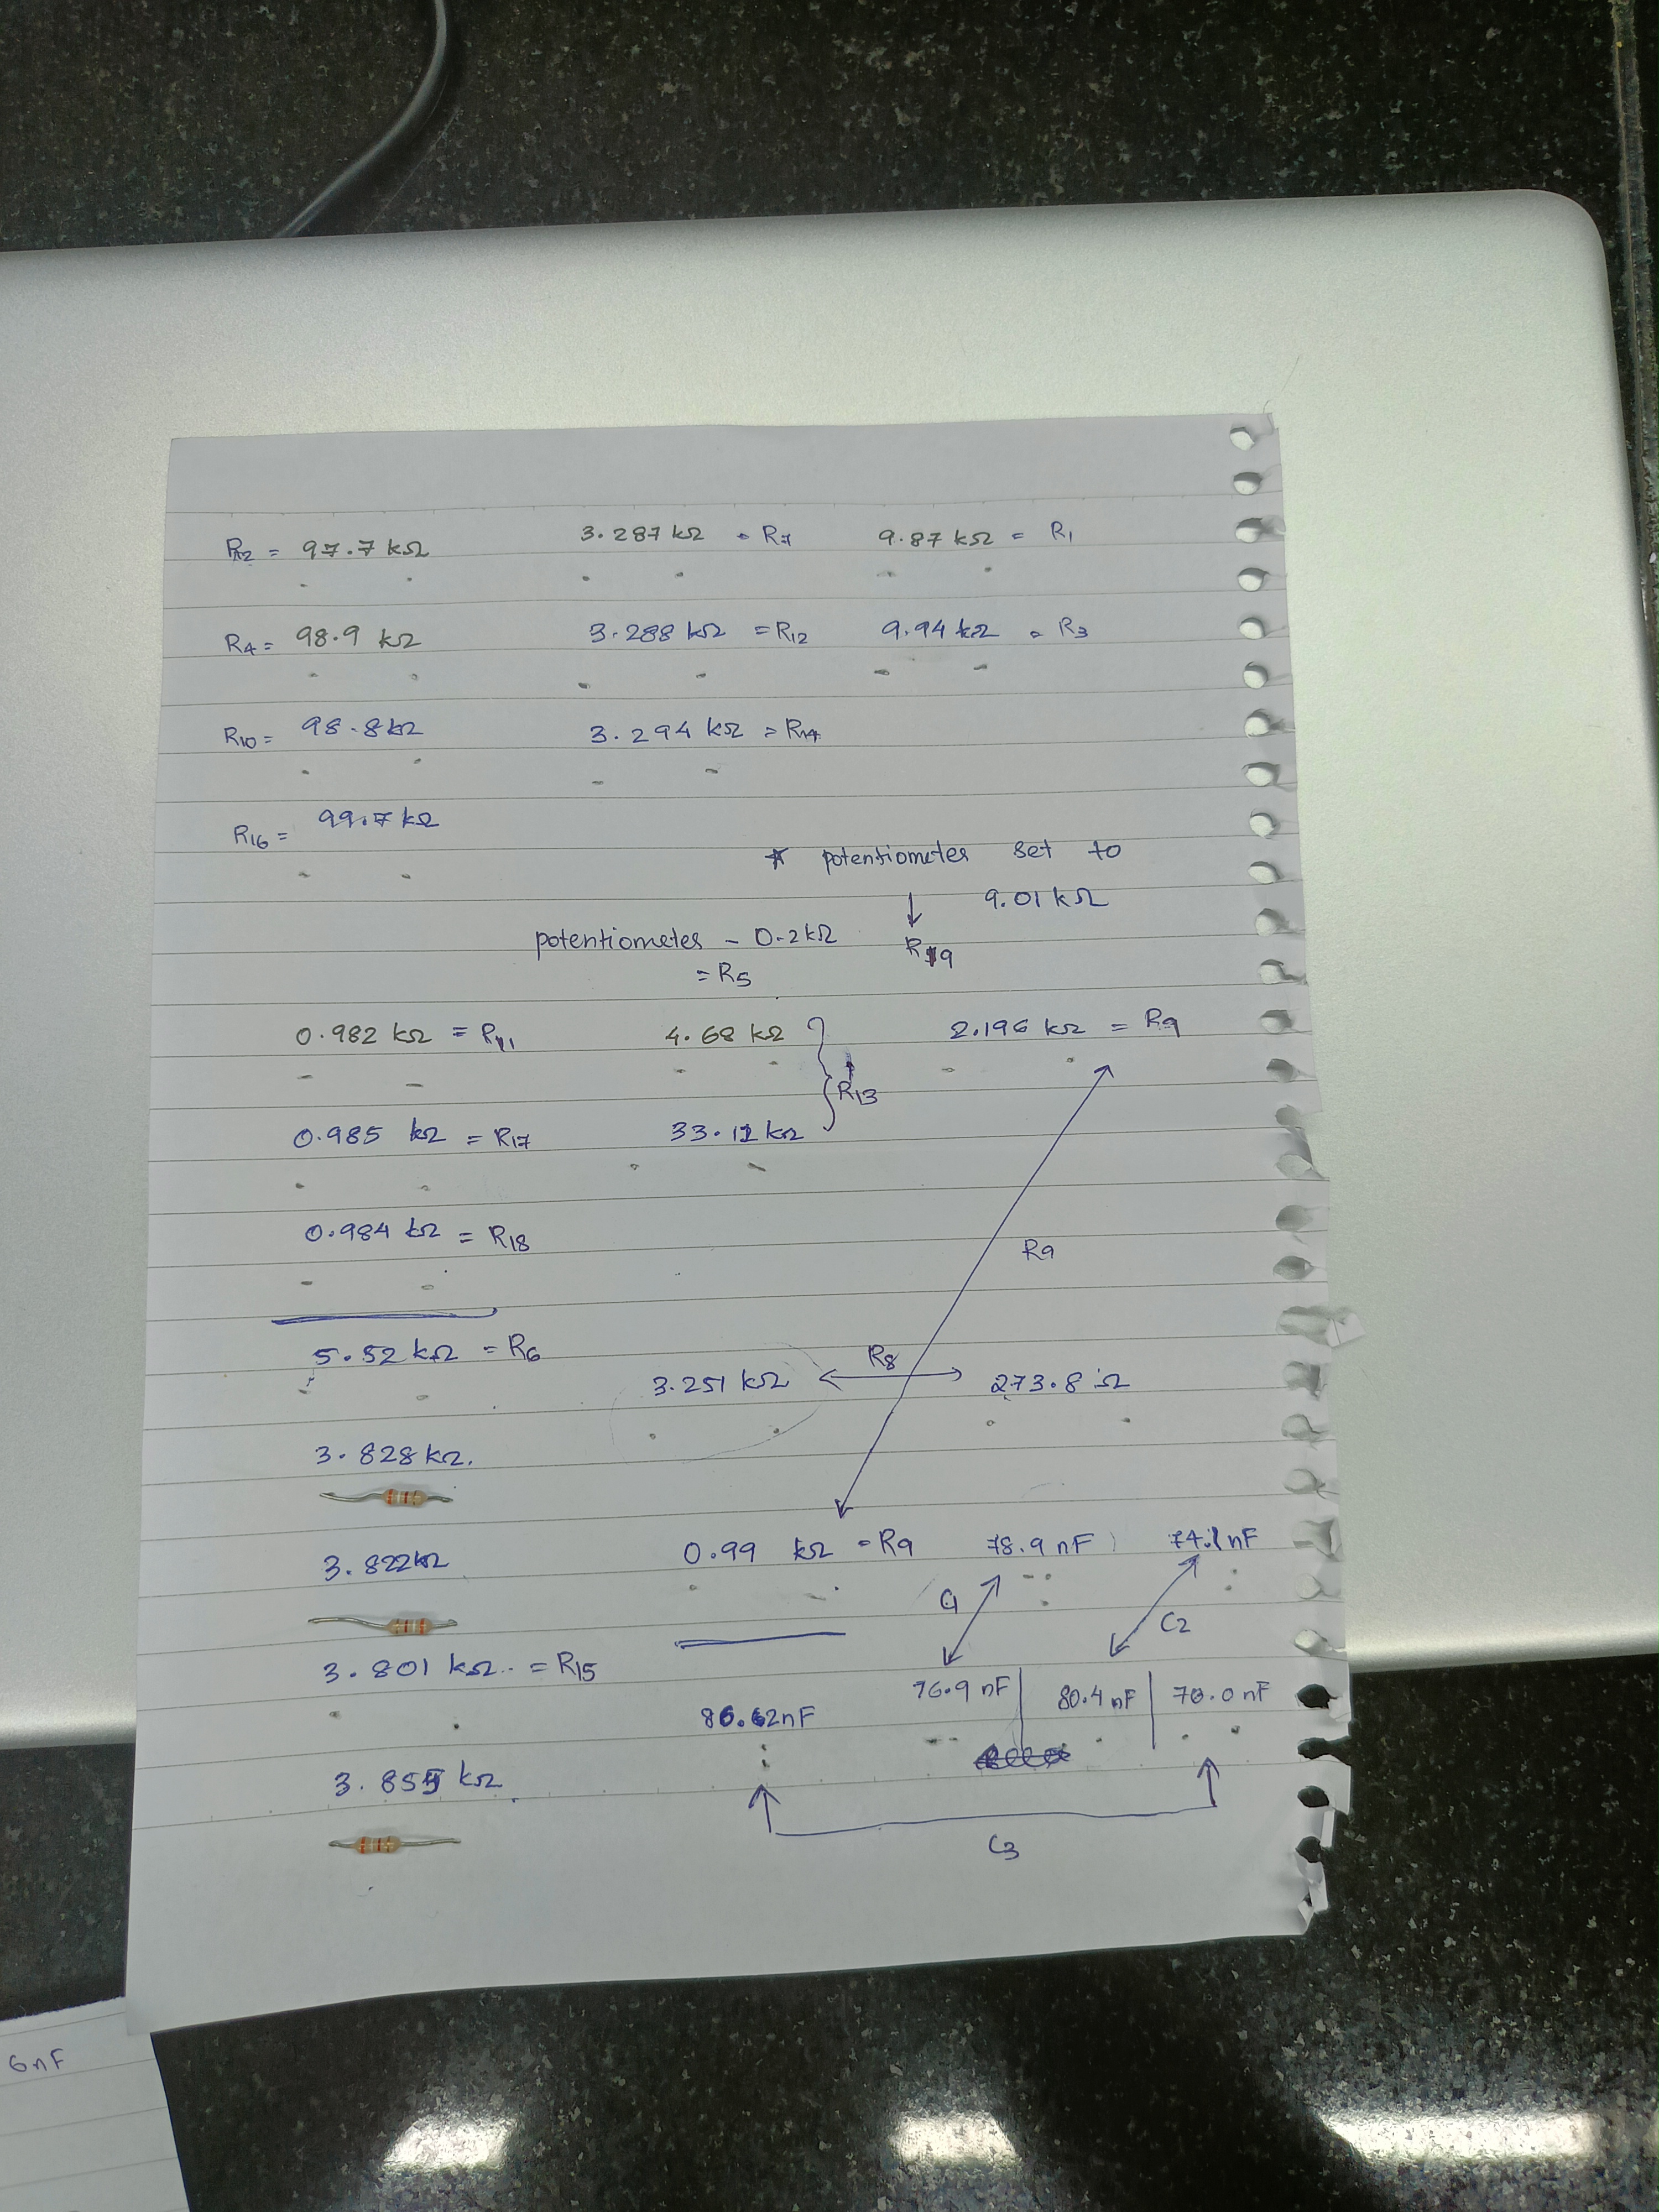 R2 = 97.7 kΩ 3.287 kΩ = R7 9.87 kΩ = R1
R4 = 98.9 kΩ 3.288 kΩ = R12 9.94 kΩ = R3
R10 = 98.8 kΩ 3.294 kΩ = R14
R16 = 99.7 kΩ
* potentiometes set to
9.01 kΩ
↓
R19
potentiometes - 0.2 kΩ
= R5
0.982 kΩ = R11 4.68 kΩ 2.196 kΩ = R9
R13
0.985 kΩ = R17 33.12 kΩ
0.984 kΩ = R18
R9
5.52 kΩ = R6
3.251 kΩ R8 273.8 Ω
3.828 kΩ.
3.822 kΩ 0.99 kΩ = R9 78.9 nF 74.1 nF
C1 C2
3.801 kΩ = R15 76.9 nF 80.4 nF 70.0 nF
86.62 nF
3.855 kΩ
C3
6nF